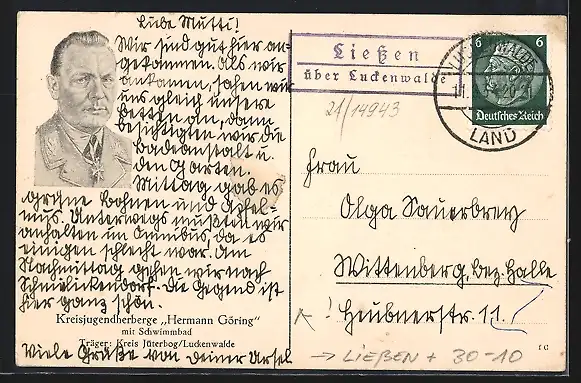 Liebe Mutti!
Wir sind gut hier an-
gekommen. Als wir
ankamen, sahen wir
uns gleich unsere
Betten an, dann
besichtigten wir die
Badeanstalt u.
den Garten.
Mittag gab es
grüne Bohnen und Apfel-
mus. Unterwegs mußten wir
anhalten im Omnibus, da es
einigen schlecht war. Am
Nachmittag gehen wir nach
Schmielickendorf. Die Gegend ist
hier ganz schön.
Kreisjugendherberge „Hermann Göring“
mit Schwimmbad
Träger: Kreis Jüterbog/Luckenwalde
Viele Grüße von deiner Ursel
Ließen
über Luckenwalde
21/14943
6 6
Deutsches Reich
LAND
Frau
Olga Sauerbrey
Wittenberg, bez. Halle
Heubnerstr. 11.
! → LIEßEN + 30-10